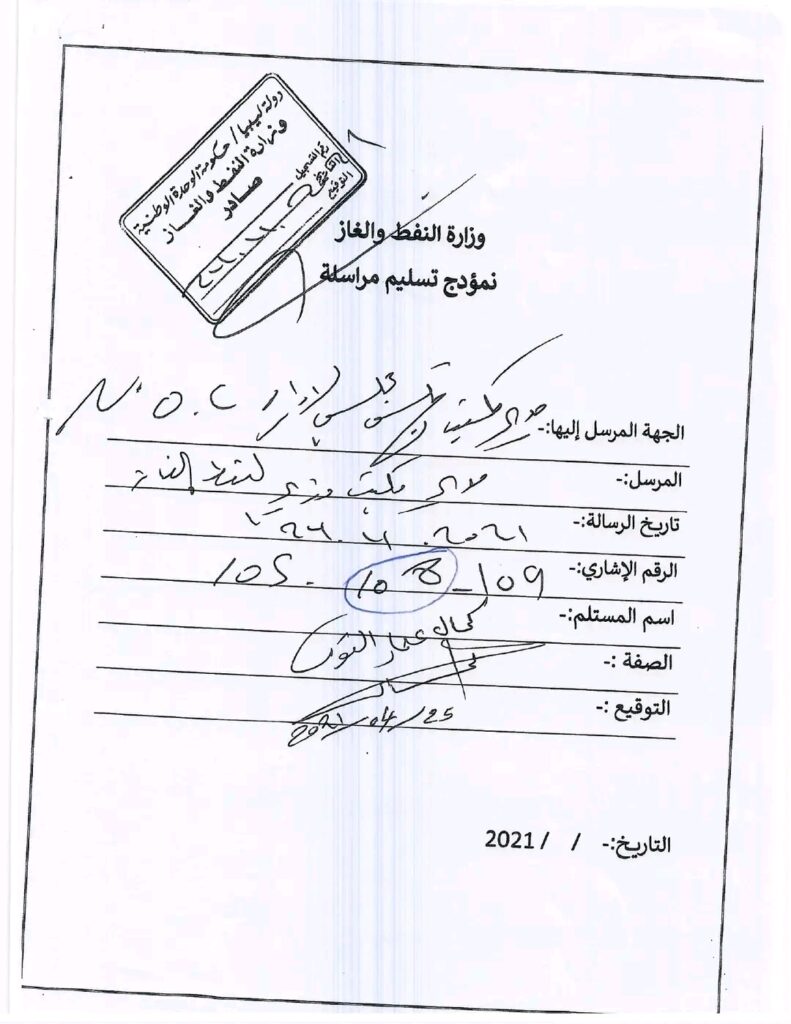 دولة ليبيا / حكومة الوحدة الوطنية
وزارة النفط والغاز
صادر
التوقيع
وزارة النفط والغاز
نمؤدج تسليم مراسلة
الجهة المرسل إليها:- مدير مكتب رئيس مجلس إدارة N.O.C
المرسل:- مدير مكتب وزير النفط والغاز
تاريخ الرسالة:- 2021
الرقم الإشاري:- 109 - 108 . 105
اسم المستلم:- كمال عمار
الصفة :-
التوقيع :-
2021/04/25
التاريخ:- / / 2021